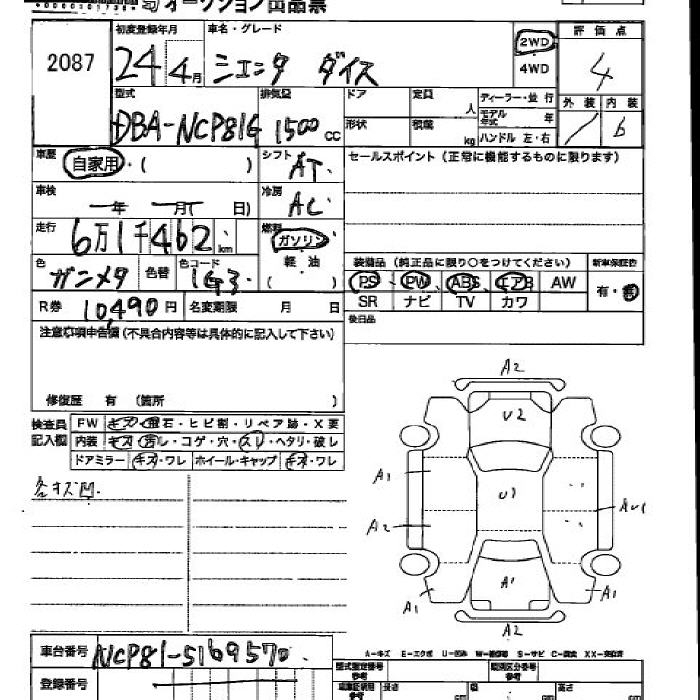 オークション出品票
2087
初度登録年月
24年4月
車名・グレード
シエンタ ダイス
2WD
4WD
評価点
4
型式
DBA-NCP81G
排気量
1500cc
ドア
形状
定員 人
積載 kg
ディーラー・並行
モデル年式 年
ハンドル 左・右
外装 内装
6
車歴
自家用・( )
シフト AT
セールスポイント(正常に機能するものに限ります)
車検
年 月( 日)
冷房 AC
走行
6万1千462km
燃料
ガソリン
軽油
( )
色 ガンメタ
色替
色コード 1G3
装備品(純正品に限り○をつけてください)
新車保証書
PS・PW・ABS・エアB AW
SR ナビ TV カワ
有・無
R券 10,490円
名変期限 月 日
後日品
注意事項申告欄(不具合内容等は具体的に記入して下さい)
修復歴 有(箇所 )
検査員記入欄
FW キズ・飛石・ヒビ割・リペア跡・X要
内装 キズ・汚レ・コゲ・穴・スレ・ヘタリ・破レ
ドアミラー キズ・ワレ ホイール・キャップ キズ・ワレ
各キズ凹.
A2
U2
A1
U1
A2
A1
A1
A1
A2
A-キズ E-エクボ U-凹み W-補修跡 S-サビ C-腐食 XX-交換済
車台番号 NCP81-5169570
登録番号
型式指定番号
類別区分番号
長さ cm
幅 cm
高さ cm